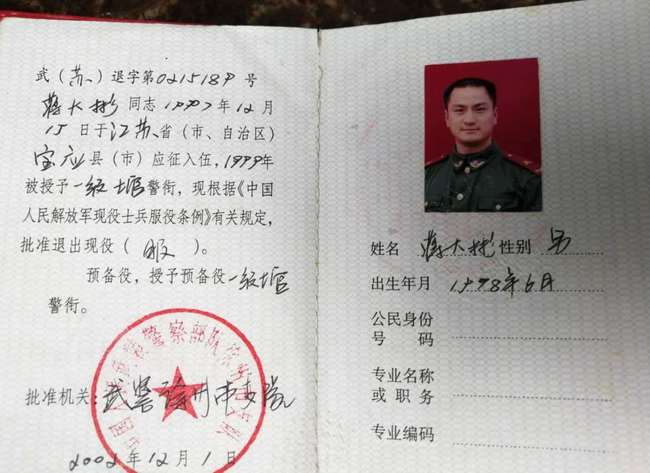 武(苏)退字第0215189号
蒋大彬同志1997年12月
15日于江苏省(市、自治区)
宝应县(市)应征入伍,1999年
被授予一级士官警衔,现根据《中国
人民解放军现役士兵服役条例》有关规定,
批准退出现役( 服 )。
预备役,授予预备役一级士官
警衔。
批准机关:武警徐州市支队
2002年12月1日
姓名 蒋大彬 性别 男
出生年月 1978年6月
公民身份
号码
专业名称
或职务
专业编码